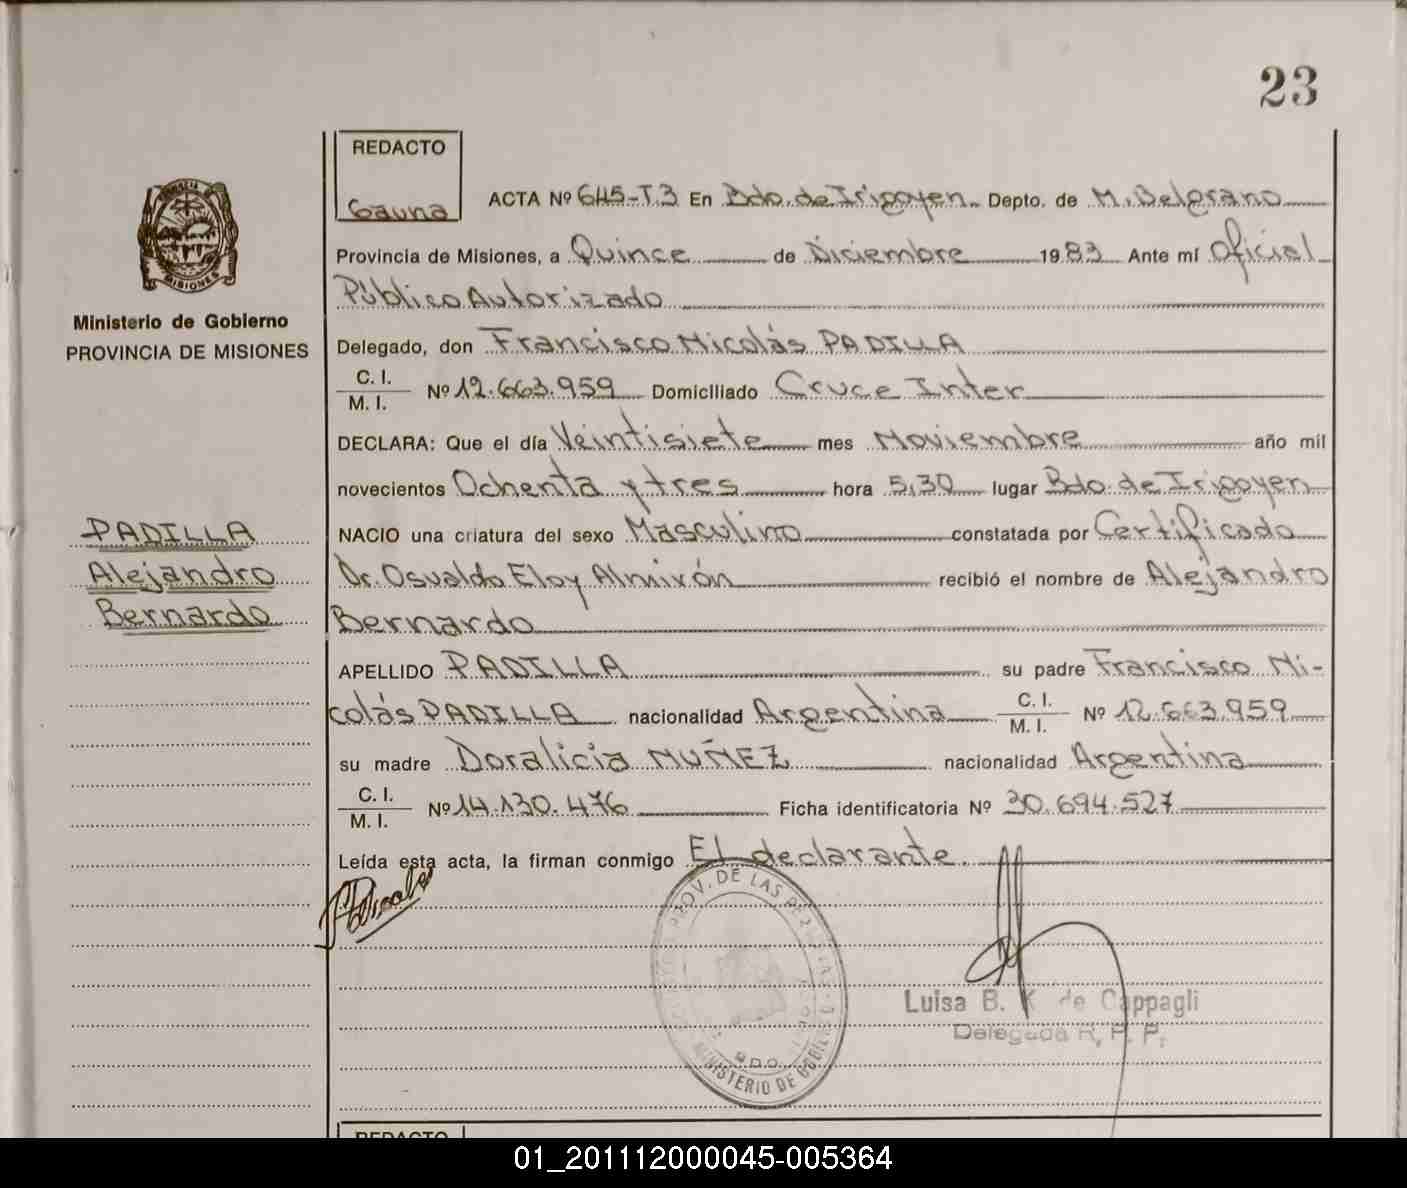 23
REDACTO
Gauna
ACTA Nº 645-T.3 En Bdo. de Irigoyen. Depto. de M. Belgrano
Provincia de Misiones, a Quince de Diciembre 1983 Ante mí Oficial
Público Autorizado
Delegado, don Francisco Nicolás PADILLA
C. I.
M. I.
Nº 12.663.959 Domiciliado Cruce Inter
DECLARA: Que el día Veintisiete mes Noviembre año mil
novecientos Ochenta y tres hora 5,30 lugar Bdo. de Irigoyen
NACIO una criatura del sexo Masculino constatada por Certificado
Dr. Osvaldo Eloy Almirón recibió el nombre de Alejandro
Bernardo
APELLIDO PADILLA su padre Francisco Ni-
colás PADILLA nacionalidad Argentina C. I. M. I. Nº 12.663.959
su madre Doralicia NUÑEZ nacionalidad Argentina
C. I.
M. I.
Nº 14.130.476 Ficha identificatoria Nº 30.694.527
Leída esta acta, la firman conmigo El declarante.
MISIONES
Ministerio de Gobierno
PROVINCIA DE MISIONES
PADILLA
Alejandro
Bernardo
PROV. DE LAS PERSONAS
MINISTERIO DE GOBIERNO
BDO.
Luisa B. K de Cappagli
Delegada R. P. P.
REDACTO
01_201112000045-005364